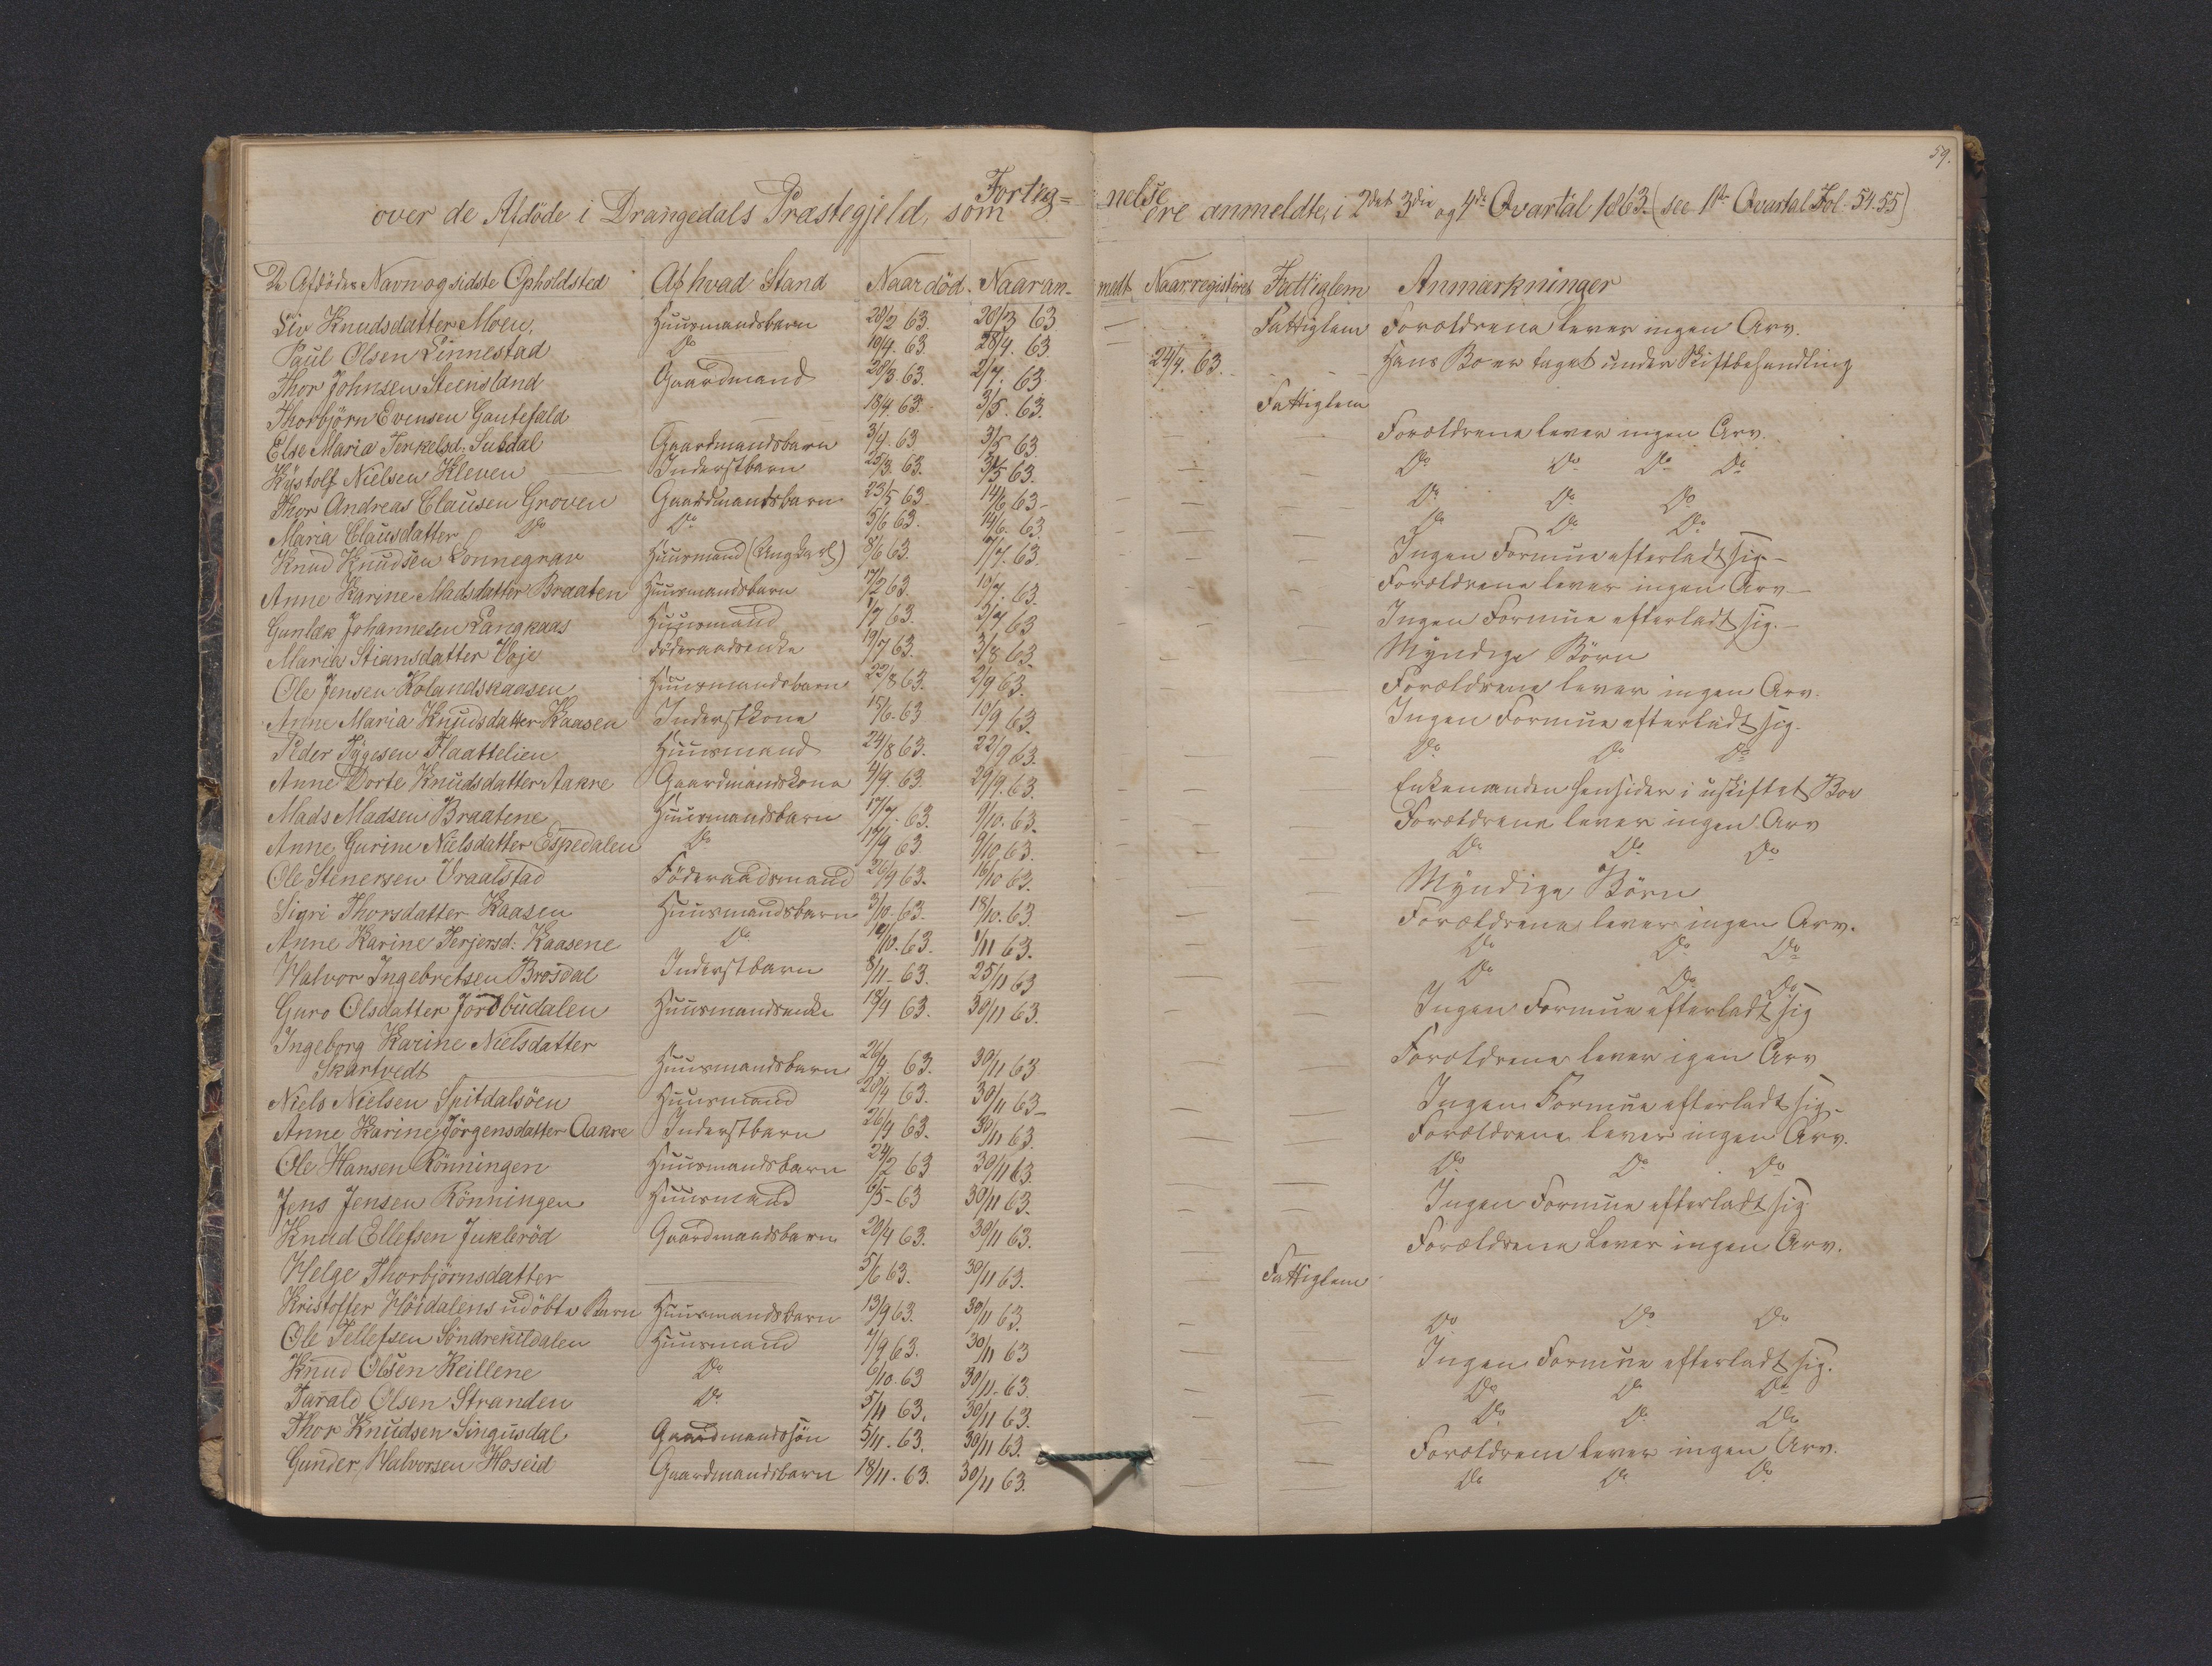 59.
Forteg= nelse
over de Afdöde i Drangedals Præstegjeld, som ere anmeldte, i 2det 3die og 4de Qvartal 1863. (see 1ste Qvartal Fol 54.55)
De Afdödes Navn og sidste Opholdsted Af hvad Stand Naar död. Naar an- meldt Naar registeret Fattiglem Anmærkninger
Siv Knudsdatter Moen, Huusmandsbarn 20/2 63. 20/3 63 — Fattiglem Forældrene lever ingen Arv.
Paul Olsen Linnestad Do 19/4. 63. 28/4. 63. —
Thor Johnsen Steensland Gaardmand 20/3. 63. 2/4. 63 24/4. 63. - - Hans Bo er taget under Skiftbehandling
Thorbjörn Evensen Gautefald — 18/4. 63. 3/5. 63. Fattiglem
Else Maria Terkelsd. Suldal Gaardmandsbarn 3/4. 63 3/5 63 — — Forældrene lever ingen Arv.
Kystolf Nielsen Kleven — Inderstbarn 25/3. 63. 31/5 63. — — Do Do Do Do
Thor Andreas Clausen Groven Gaardmandsbarn 23/5 63 14/6 63- — — — Do Do Do
Maria Clausdatter Do Do 5/6 63. 14/6. 63 — — Do Do Do
Knud Knudsen Lonnegrav Huusmand (Ungkarl) 8/6 63. 7/7. 63. — — Ingen Formue efterladt sig -
Anne Karine Madsdatter Braaten Huusmandsbarn 17/2 63. 10/7. 63. — — Forældrene lever ingen Arv -
Gunlek Johannesen Langkaas Huusmand 1/7 63. 5/7 63 — — — Ingen Formue efterladt sig. -
Maria Stiansdatter Voje Föderaadsenke 19/7 63. 3/8 63. — — Myndige Börn
Ole Jensen Rolandskaasen Huusmandsbarn 22/8 63. 2/9 63. — — Forældrene lever ingen Arv.
Anne Maria Knudsdatter Kaasen Inderstkone 15/6. 63 10/9 63. — — Ingen Formue efterladt sig.
Peder Tygesen Flaattelien Huusmand 24/8 63. 22/9 63. — — Do Do Do
Anne Dorte Knudsdatter Aakre Gaardmandskone 4/9. 63. 29/9. 63. — — — Enkemanden hensider i uskiftet Boe
Mads Madsen Braatene Huusmandsbarn 17/7. 63. 9/10. 63. — — — Forældrene lever ingen Arv
Anne Gurine Nielsdatter Espedalen Do 17/9 63. 9/10 63. — — — Do Do Do
Ole Stenersen Vraalstad Föderaadsmand 26/9 63. 16/10 63. — — Myndige Börn
Sigri Thorsdatter Kaasen Huusmandsbarn 3/10. 63. 18/10. 63. — — Forældrene lever ingen Arv.
Anne Karine Terjersd: Kaasene Do 10/10. 63. 1/11 63. — — Do Do Do
Halvor Ingebretsen Brosdal Inderstbarn 8/11 - 63. 25/11 63 — — Do Do Do
Guro Olsdatter Jordbudalen Huusmandsenke 18/4 63. 30/11 63. — — Ingen Formue efterladt sig
Ingeborg Karine Nielsdatter
Skartvedt — Huusmandsbarn 26/4. 63. 30/11 63 — — Forældrene lever igen Arv
Niels Nielsen Spitdalsöen Huusmand 20/4 63. 30/11 63- — — Ingen Formue efterladt sig -
Anne Karine Jörgensdatter Aakre Inderstbarn 26/4 63. 30/11 63. — — Forældrene lever ingen Arv.
Ole Hansen Rönningen Huusmandsbarn 24/2 63 30/11 63. — — Do Do Do
Jens Jensen Rönningen Huusmand 6/5 - 63 30/11 63. — — Ingen Formue efterladt sig
Knud Ellefsen Jukleröd Gaardmandsbarn 20/4 63. 30/11 63. — — Forældrene lever ingen Arv.
Helge Thorbjörnsdatter — 5/6 63. 30/11 63. — Fattiglem
Kristoffer Höidalens udöbte Barn Huusmandsbarn 13/9 63. 30/11 63. — — Do Do Do
Ole Tellefsen Söndrekildalen Huusmand 7/9 63. 30/11 63 — — Ingen Formue efterladt sig.
Knud Olsen Keillene Do 6/10. 63 30/11. 63. — — Do Do Do
Tarald Olsen Stranden Do 5/11 63. 30/11 63. — — Do Do Do
Thor Knudsen Singusdal Gaardmandssön 5/11. 63. 30/11 63. — — Forældrene lever ingen Arv.
Gunder Halvorsen Hoseid Gaardmandsbarn 18/11. 63. 30/11 63. — — Do Do Do